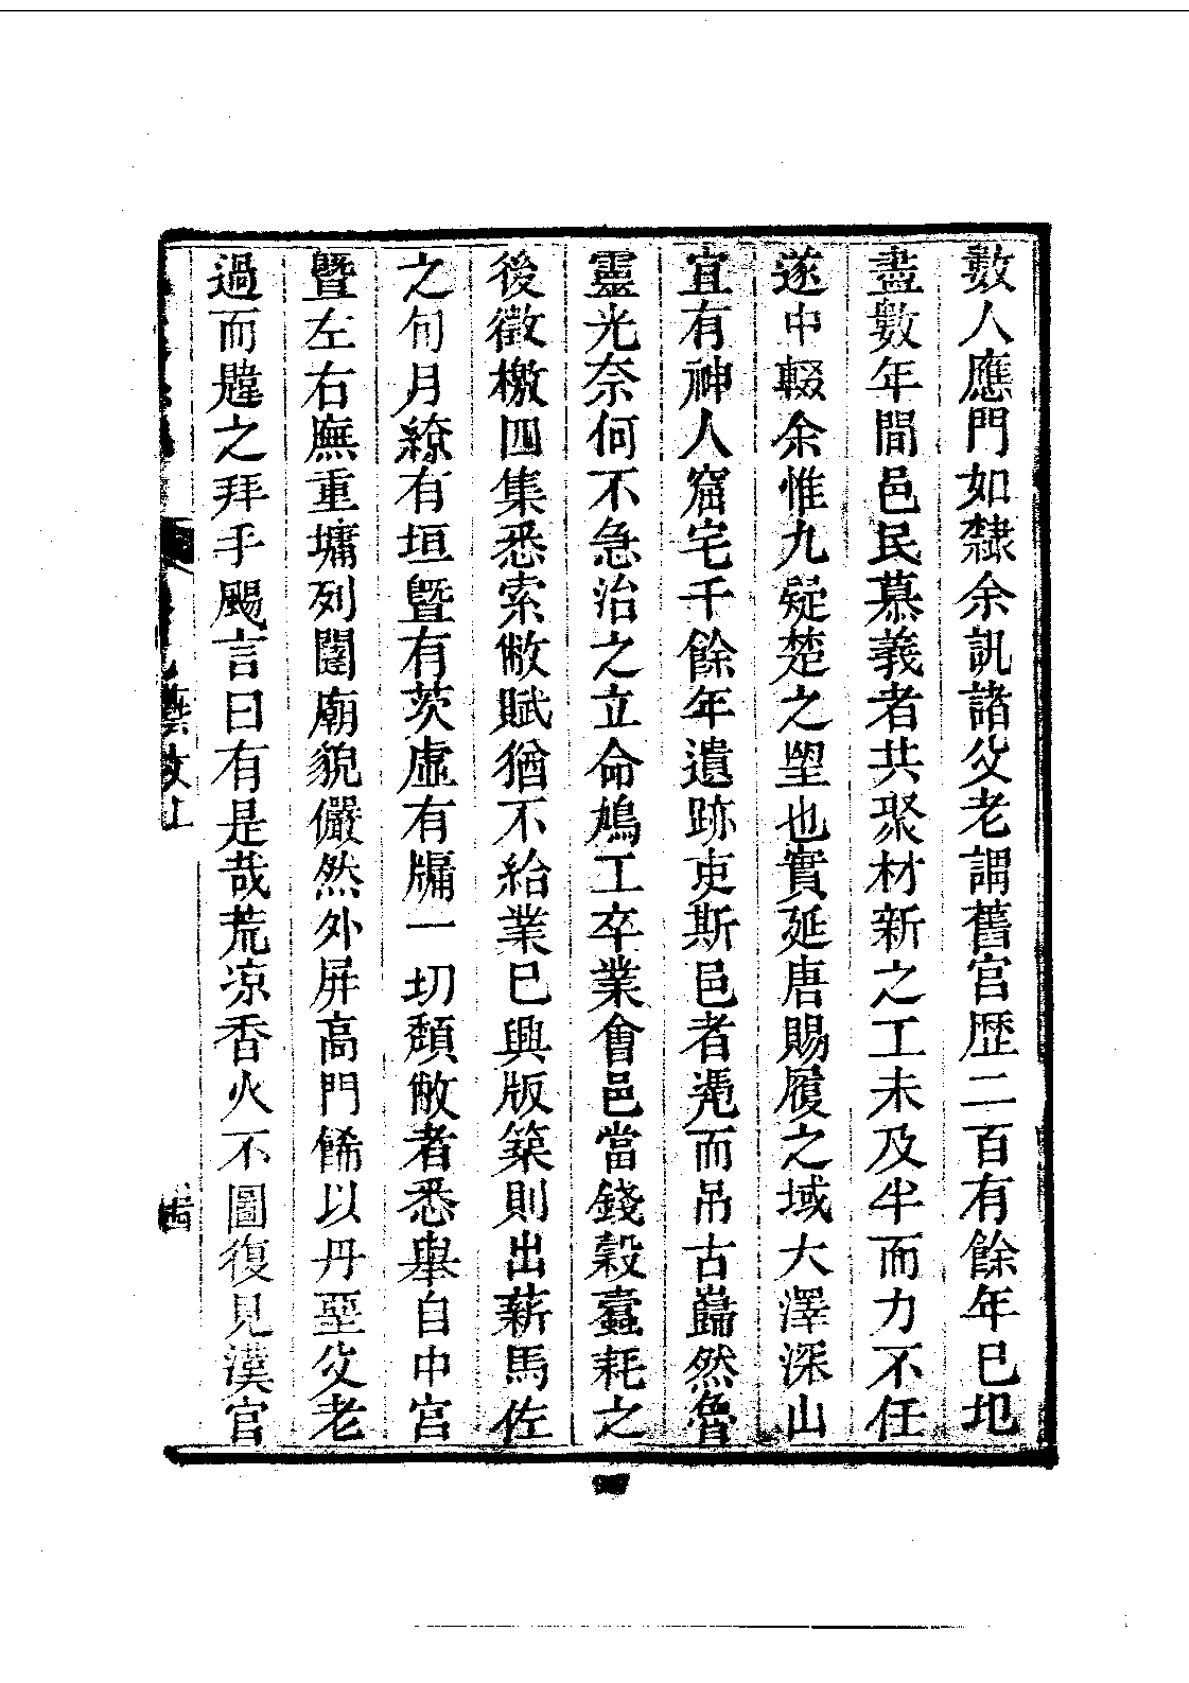 數人應門如隸余訊諸父老謂舊宫歴二百有餘年已圯
盡數年間邑民慕義者共聚材新之工未及半而力不任
遂中輟余惟九疑楚之望也實延唐賜履之域大澤深山
宜有神人窟宅千餘年遺跡吏斯邑者凴而吊古巋然魯
靈光奈何不急治之立命鳩工卒業會邑當錢穀蠧耗之
後徵檄四集悉索敝賦猶不給業已興版築則出薪馬佐
之旬月繚有垣曁有茨虛有牖一切頽敝者悉舉自中宫
曁左右廡重墉列闥廟貌儼然外屏高門餙以丹堊父老
過而韙之拜手颺言曰有是哉荒凉香火不圖復見漢官
藝文上